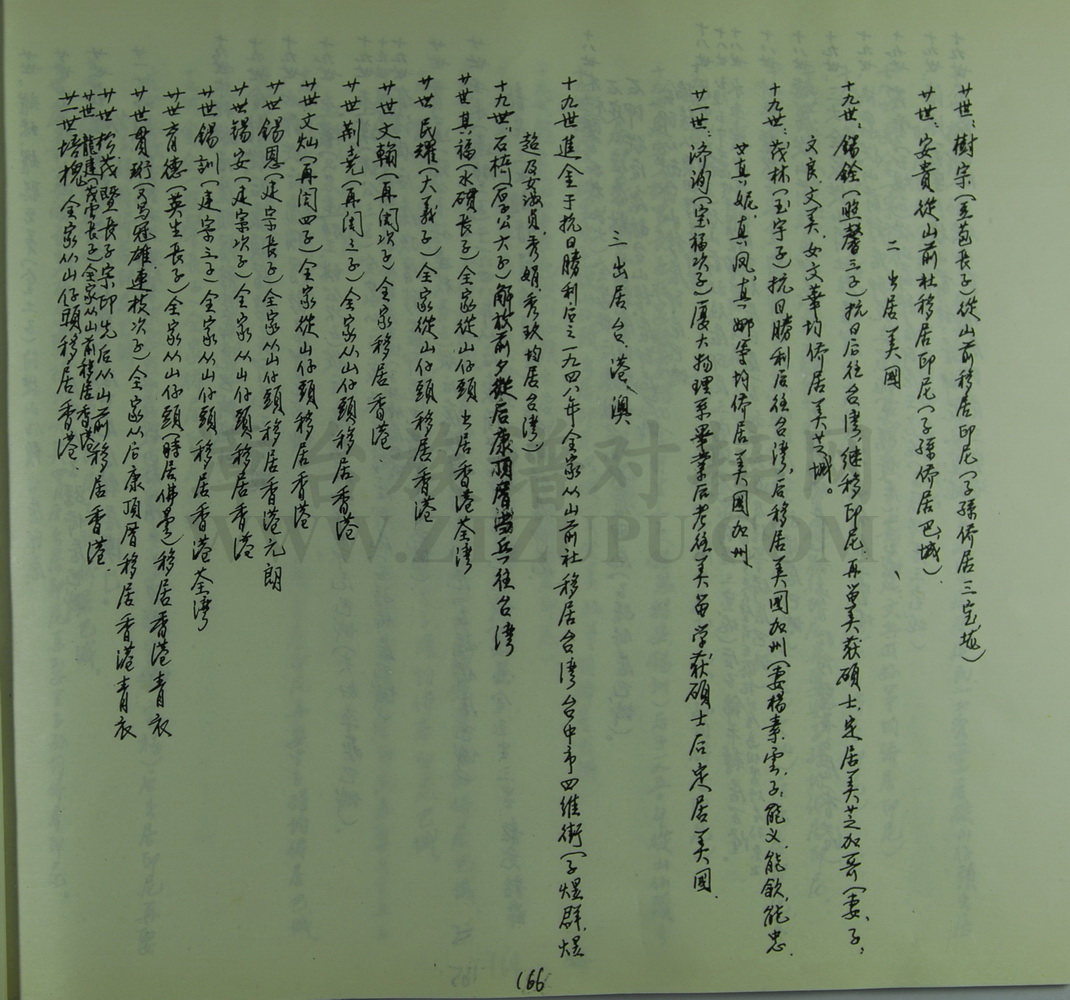 廿世：樹宗（ 長子從山前移居印尼（子孫侨居三宝垅）
廿世：安貴從山前社移居印尼（子孫侨居巴城）
二 出居美國
十九世：錫銓（照馨三子）抗日后往台湾，继移印尼，再留美获碩士，定居美芝加哥（妻、子：
文良、文美、女文華均侨居美芝城。
十九世：茂林（玉宇子）抗日勝利后往台湾，后移居美國加州（妻楊素雲，子：能义、能欽、能忠、
女真妮、真凤、真娜等均侨居美國加州
廿一世：济洵（宝福次子）厦大物理系畢業后考往美留学获碩士后定居美國
三 出居台、港、澳
十九世進金于抗日勝利后之一九四八年全家从山前社移居台湾台中市四維街（子煜群、煜
超及女淑貞、秀娟、秀玖均居台湾）
十九世：石 （厚公大子）解放前夕從后康頂厝当兵往台湾
廿世其福（水礩長子）全家從山仔頭出居香港荃湾
廿世民耀（大義子）全家從山仔頭移居香港
廿世文翰（再閏次子）全家移居香港
廿世荆尧（再閏三子）全家从山仔頭移居香港
廿世文灿（再閏四子）全家從山仔頭移居香港
廿世錫恩（建宗長子）全家从山仔頭移居香港元朗
廿世錫安（建宗次子）全家从山仔頭移居香港
廿世錫訓（建宗三子）全家从山仔頭移居香港荃湾
廿世育德（英生長子）全家从山仔頭（時居佛曇）移居香港青衣
廿世貫珩（ 冠雄，連枝次子）全家从后康頂厝移居香港青衣
廿世松茂暨長子宗印先后从山前移居香港
廿世龍進（茂雷長子）全家从山前移居香港
廿一世培槐全家从山仔頭移居香港
166
WWW.ZIZUPU.COM